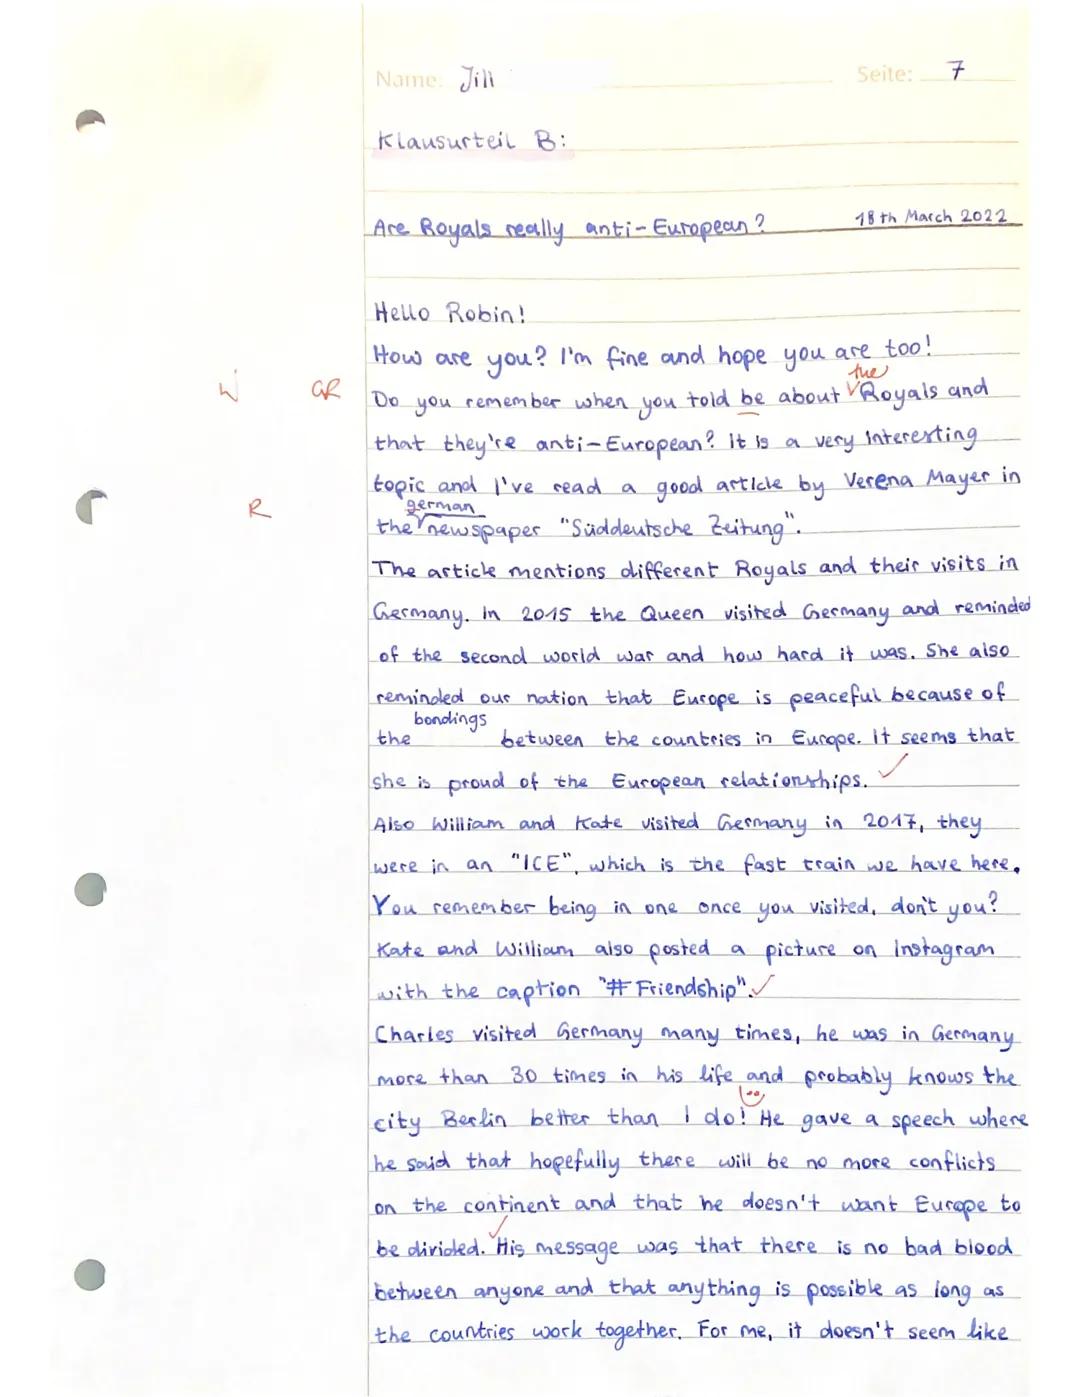 Name: Jill Seite: 7
Klausurteil B:
Are Royals really anti-European? 18th March 2022
Hello Robin!
How are you? I'm fine and hope you are too!
the
W GR Do you remember when you told be about Royals and
that they're anti-European? It is a very interesting
topic and I've read a good article by Verena Mayer in
german
R the newspaper "Süddeutsche Zeitung".
The article mentions different Royals and their visits in
Germany. In 2015 the Queen visited Germany and reminded
of the second world war and how hard it was. She also
reminded our nation that Europe is peaceful because of
bondings
the between the countries in Europe. It seems that
she is proud of the European relationships.
Also William and Kate visited Germany in 2017, they
were in an "ICE", which is the fast train we have here.
You remember being in one once you visited, don't you?
Kate and William also posted a picture on Instagram
with the caption "# Friendship".
Charles visited Germany many times, he was in Germany
more than 30 times in his life and probably knows the
city Berlin better than I do! He gave a speech where
he said that hopefully there will be no more conflicts
on the continent and that he doesn't want Europe to
be divided. His message was that there is no bad blood
between anyone and that anything is possible as long as
the countries work together. For me, it doesn't seem like